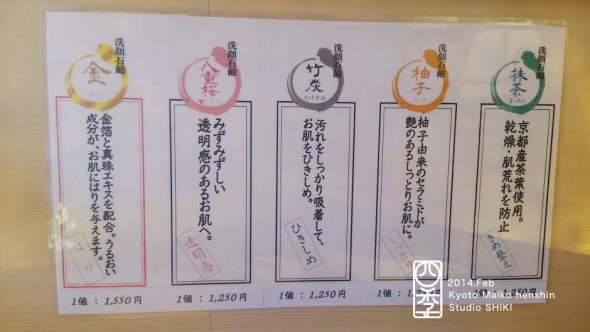 洗顔石鹸
金
金箔と真珠エキスを配合。うるおい
成分が、お肌にはりを与えます。
はり
1個 : 1,550円
洗顔石鹸
八重桜
みずみずしい
透明感のあるお肌へ。
透明感
1個 : 1,250円
洗顔石鹸
竹炭
たけすみ
汚れをしっかり吸着して、
お肌をひきしめ。
ひきしめ
1個 : 1,250円
洗顔石鹸
柚子
柚子由来のセラミドが
艶のあるしっとりお肌に。
1個 : 1,250円
洗顔石鹸
抹茶
まっちゃ
京都産茶葉使用。
乾燥・肌荒れを防止
きめ整え
1個 : 1,250円
四季
2014.Feb
Kyoto Maiko henshin
Studio SHIKI